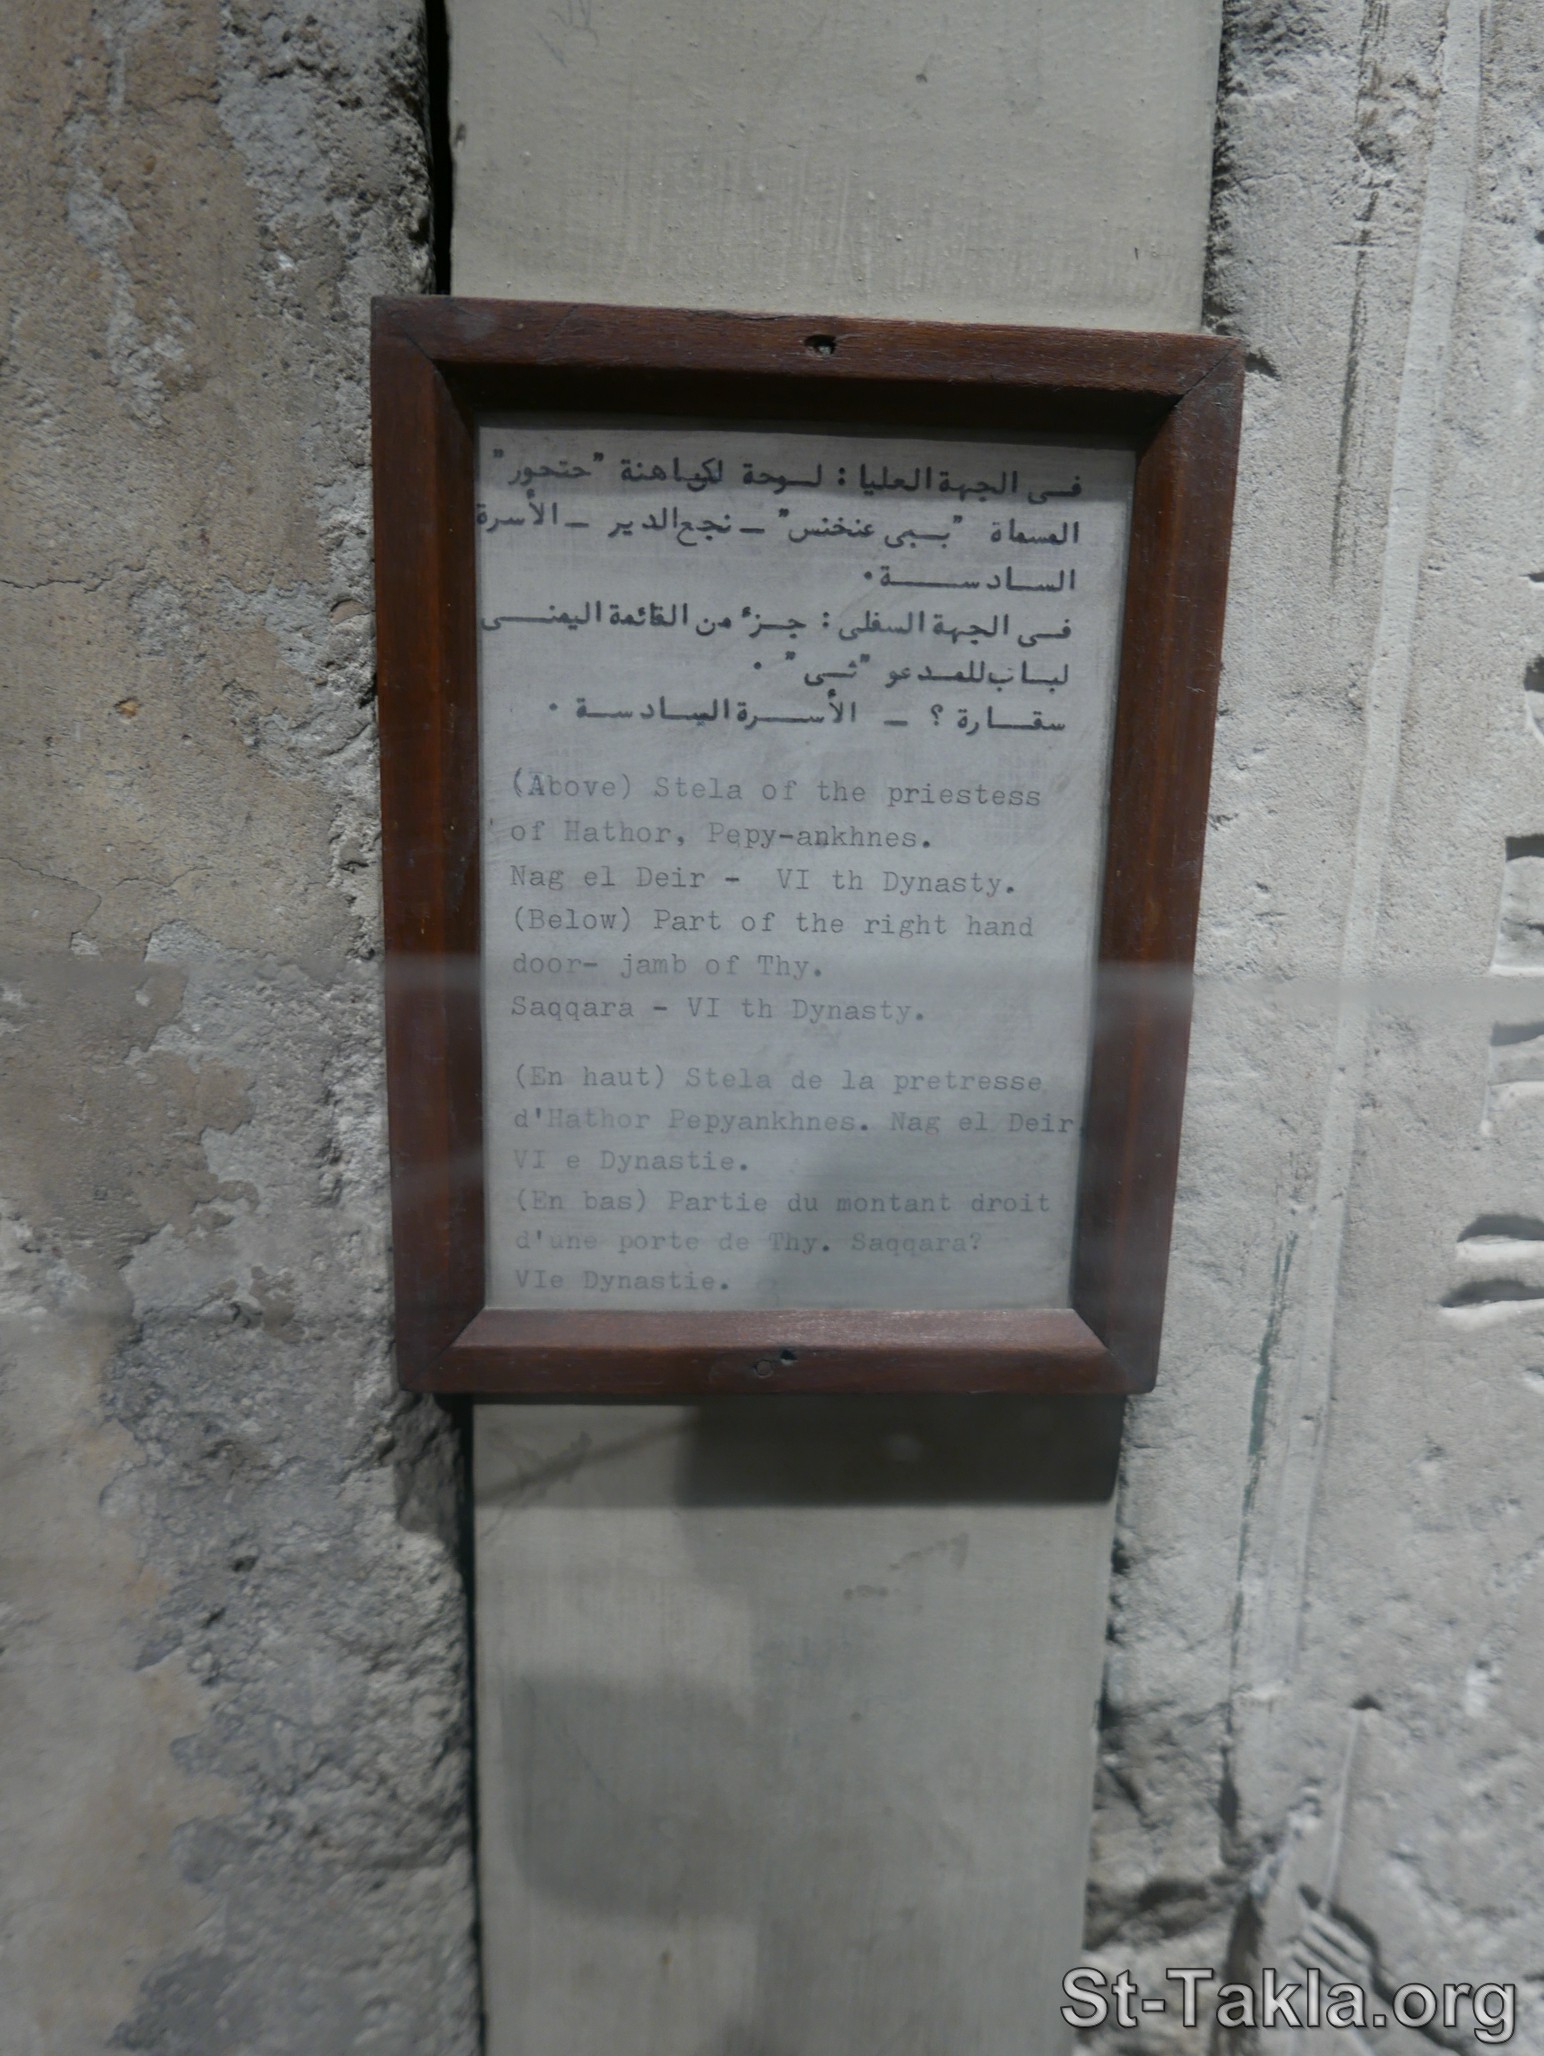 فى الجهة العليا : لوحة لكاهنة "حتحور"
المسماة "ببى عنخنس" - نجع الدير - الأسرة
السادسة .
فى الجهة السفلى : جزء من القائمة اليمنى
لباب للمدعو "ثى" .
سقارة ؟ - الأسرة السادسة .
(Above) Stela of the priestess
of Hathor, Pepy-ankhnes.
Nag el Deir - VI th Dynasty.
(Below) Part of the right hand
door- jamb of Thy.
Saqqara - VI th Dynasty.
(En haut) Stela de la pretresse
d'Hathor Pepyankhnes. Nag el Deir
VI e Dynastie.
(En bas) Partie du montant droit
d'une porte de Thy. Saqqara?
VIe Dynastie.
St-Takla.org